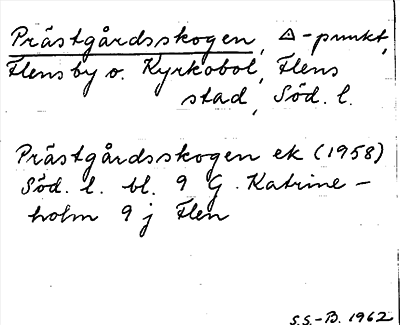 Prästgårdsskogen, Δ-punkt,
Flensby o. Kyrkobol, Flens
stad, Söd. l.
Prästgårdsskogen ek (1958)
Söd. l. bl. 9 G Katrine-
holm 9 j Flen
S.S.-B. 1962